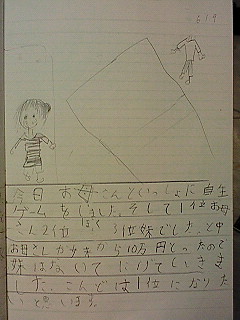 6/9
今日 お母さんといっしょに人生
ゲームをしました。そして1位お母
さん2位ぼく3位妹でした。と中
お母さんが少まから10万円とったので
妹はないてにげていきま
した。こんどは1位になりた
いと思います。